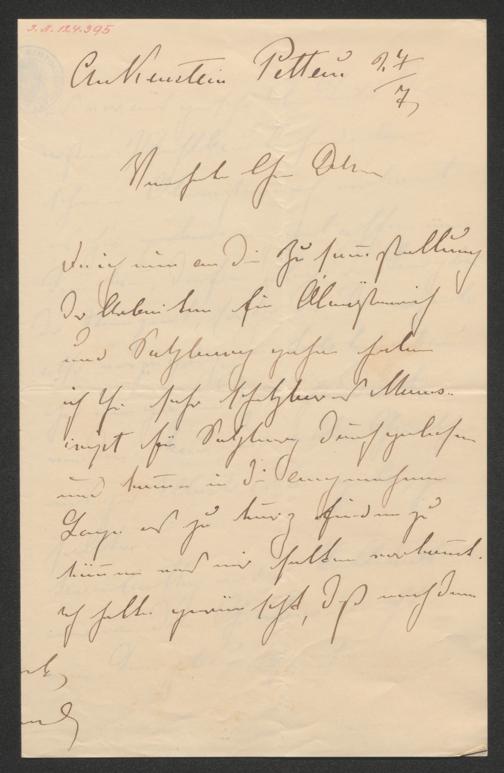 I.N. 124.395
Ankenstein Pettau 27/7
Verehrter Herr Doktor
Da ich nun an die Zusammenstellung
der Arbeiten für Oberösterreich
und Salzburg gehe habe
ich Ihr sehr schätzbares Manus-
cript für Salzburg durchgelesen
und kam in die angenehme
Lage es zu kurz finden zu
können was mir selten vorkommt.
Ich hätte gewünscht, daß nach dem